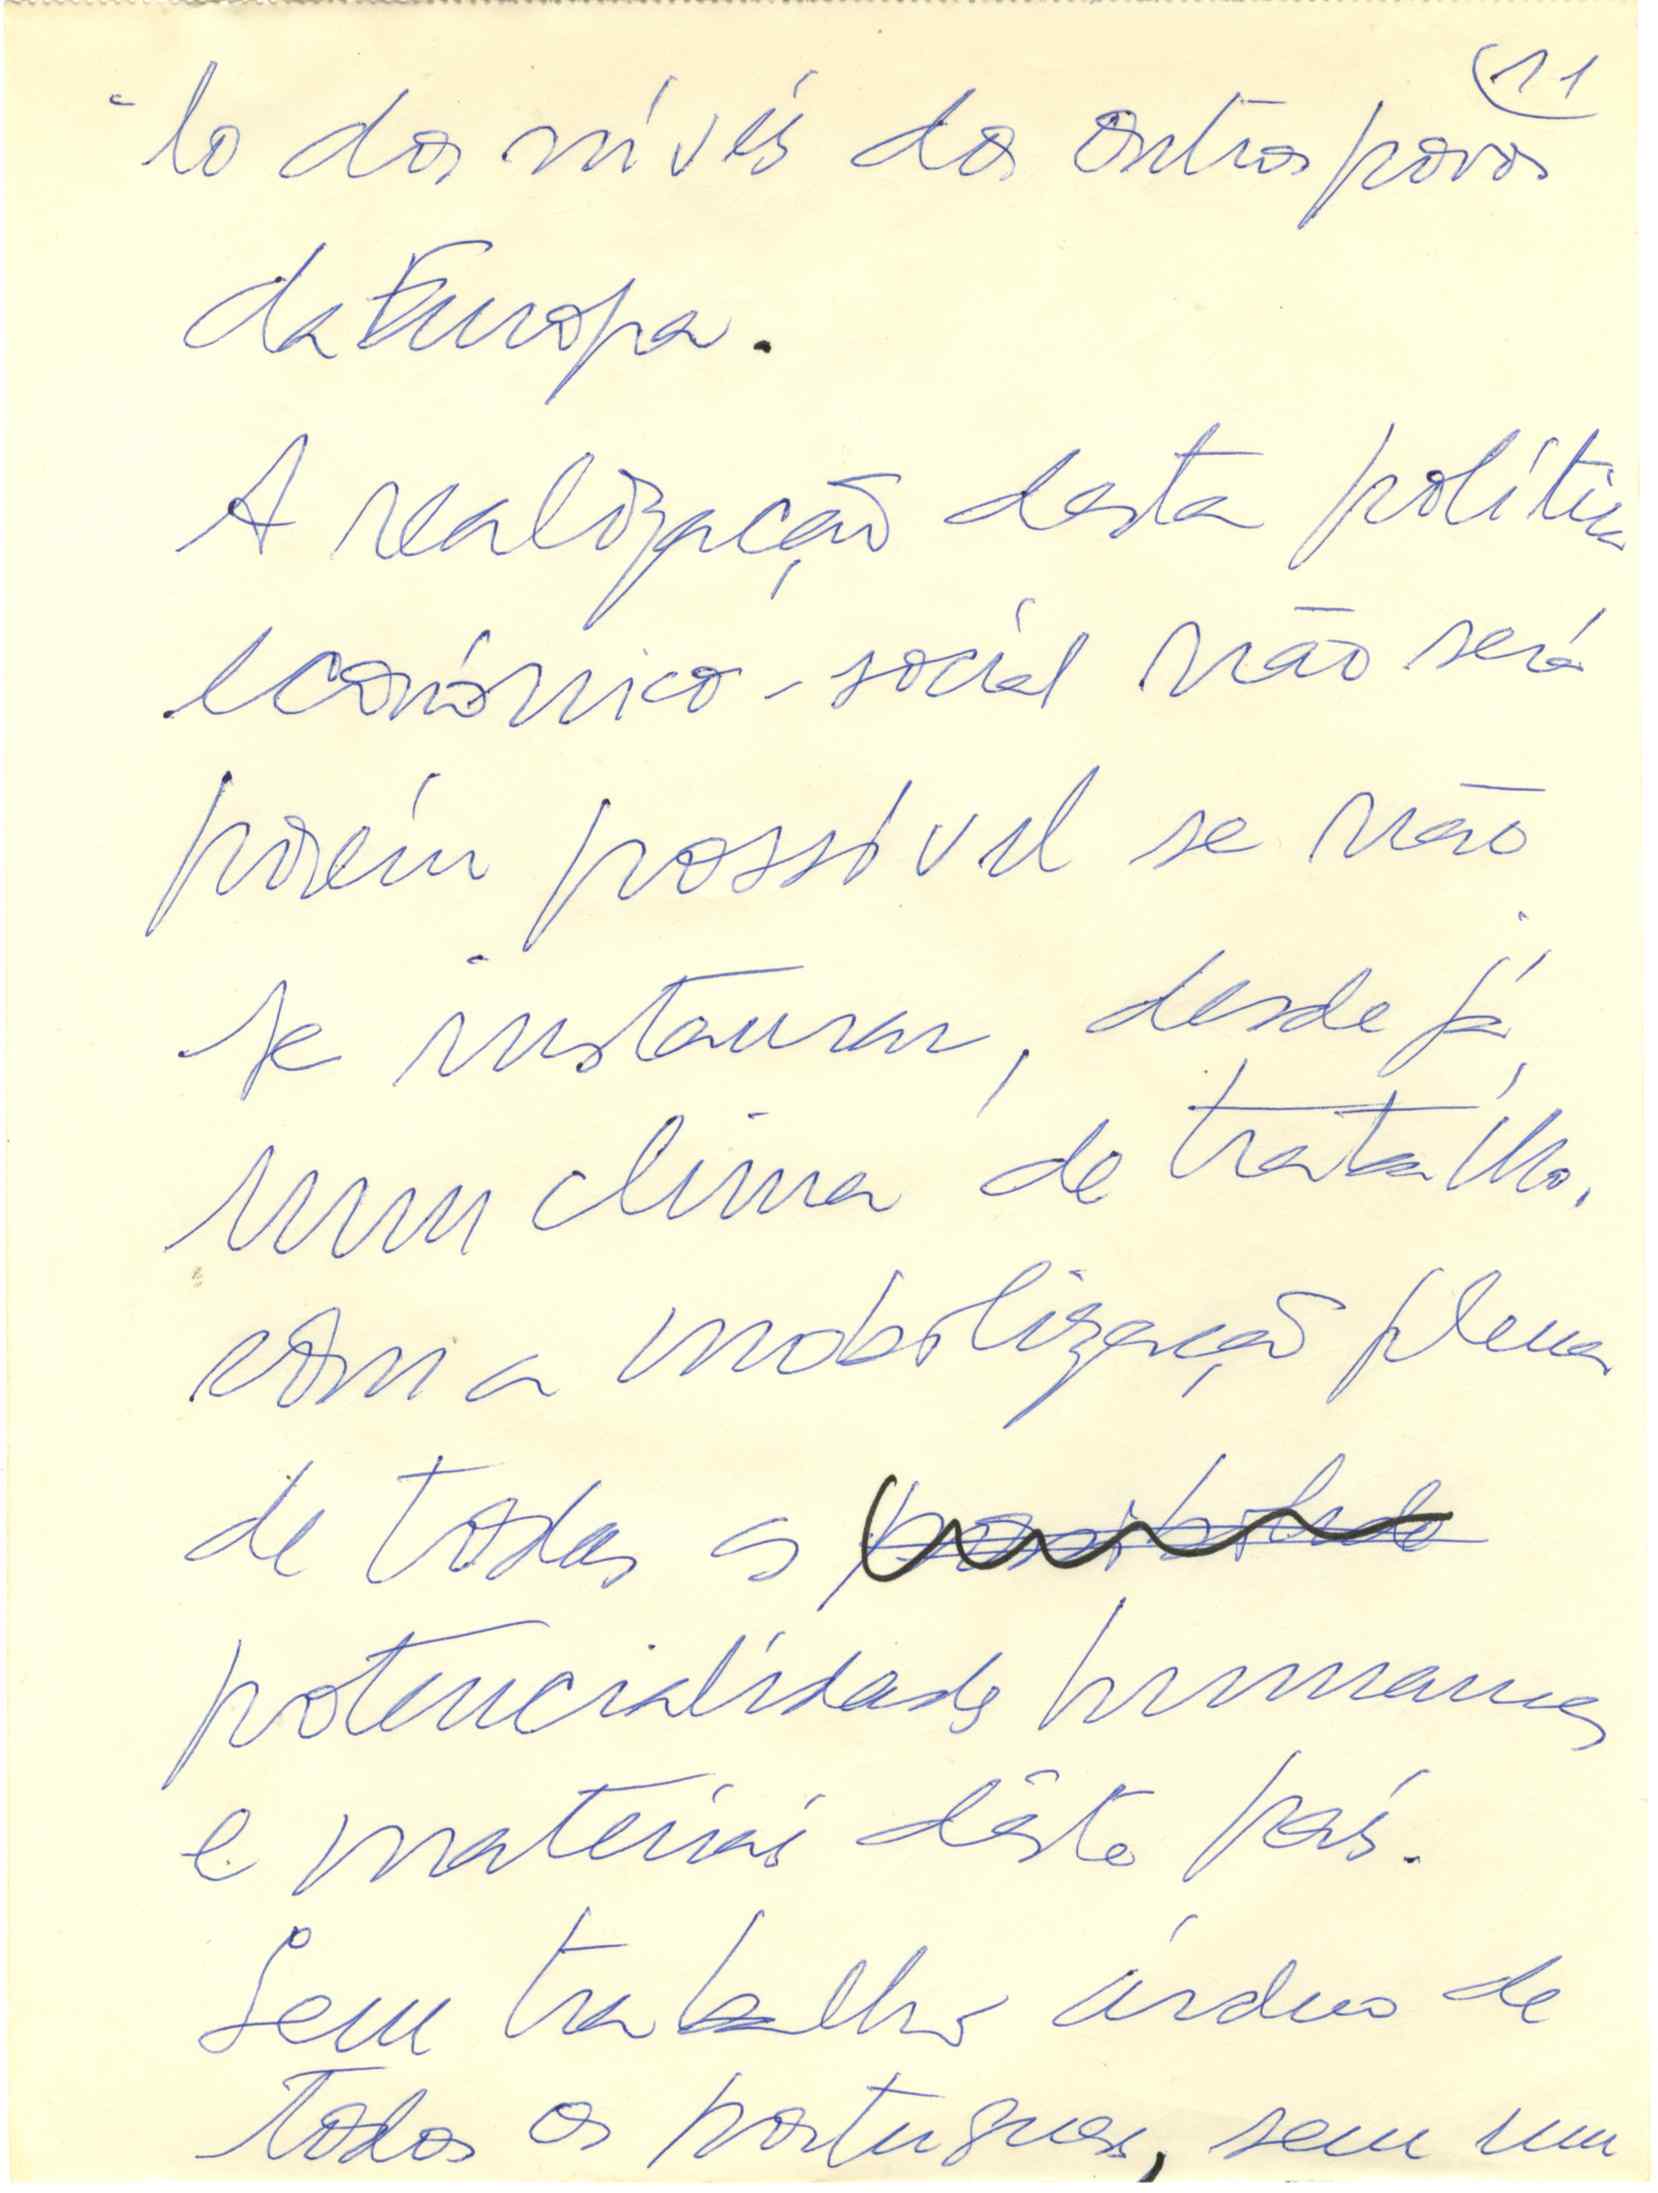 11
-lo dos níveis dos outros povos
da Europa.
A realização desta política
económico-social não será
porém possível se não
se instaurar, desde já,
um clima de trabalho,
com a mobilização plena
de todas as possibilidade
potencialidades humanas
e materiais dêste país.
Sem trabalho árduo de
todos os portugueses, sem um